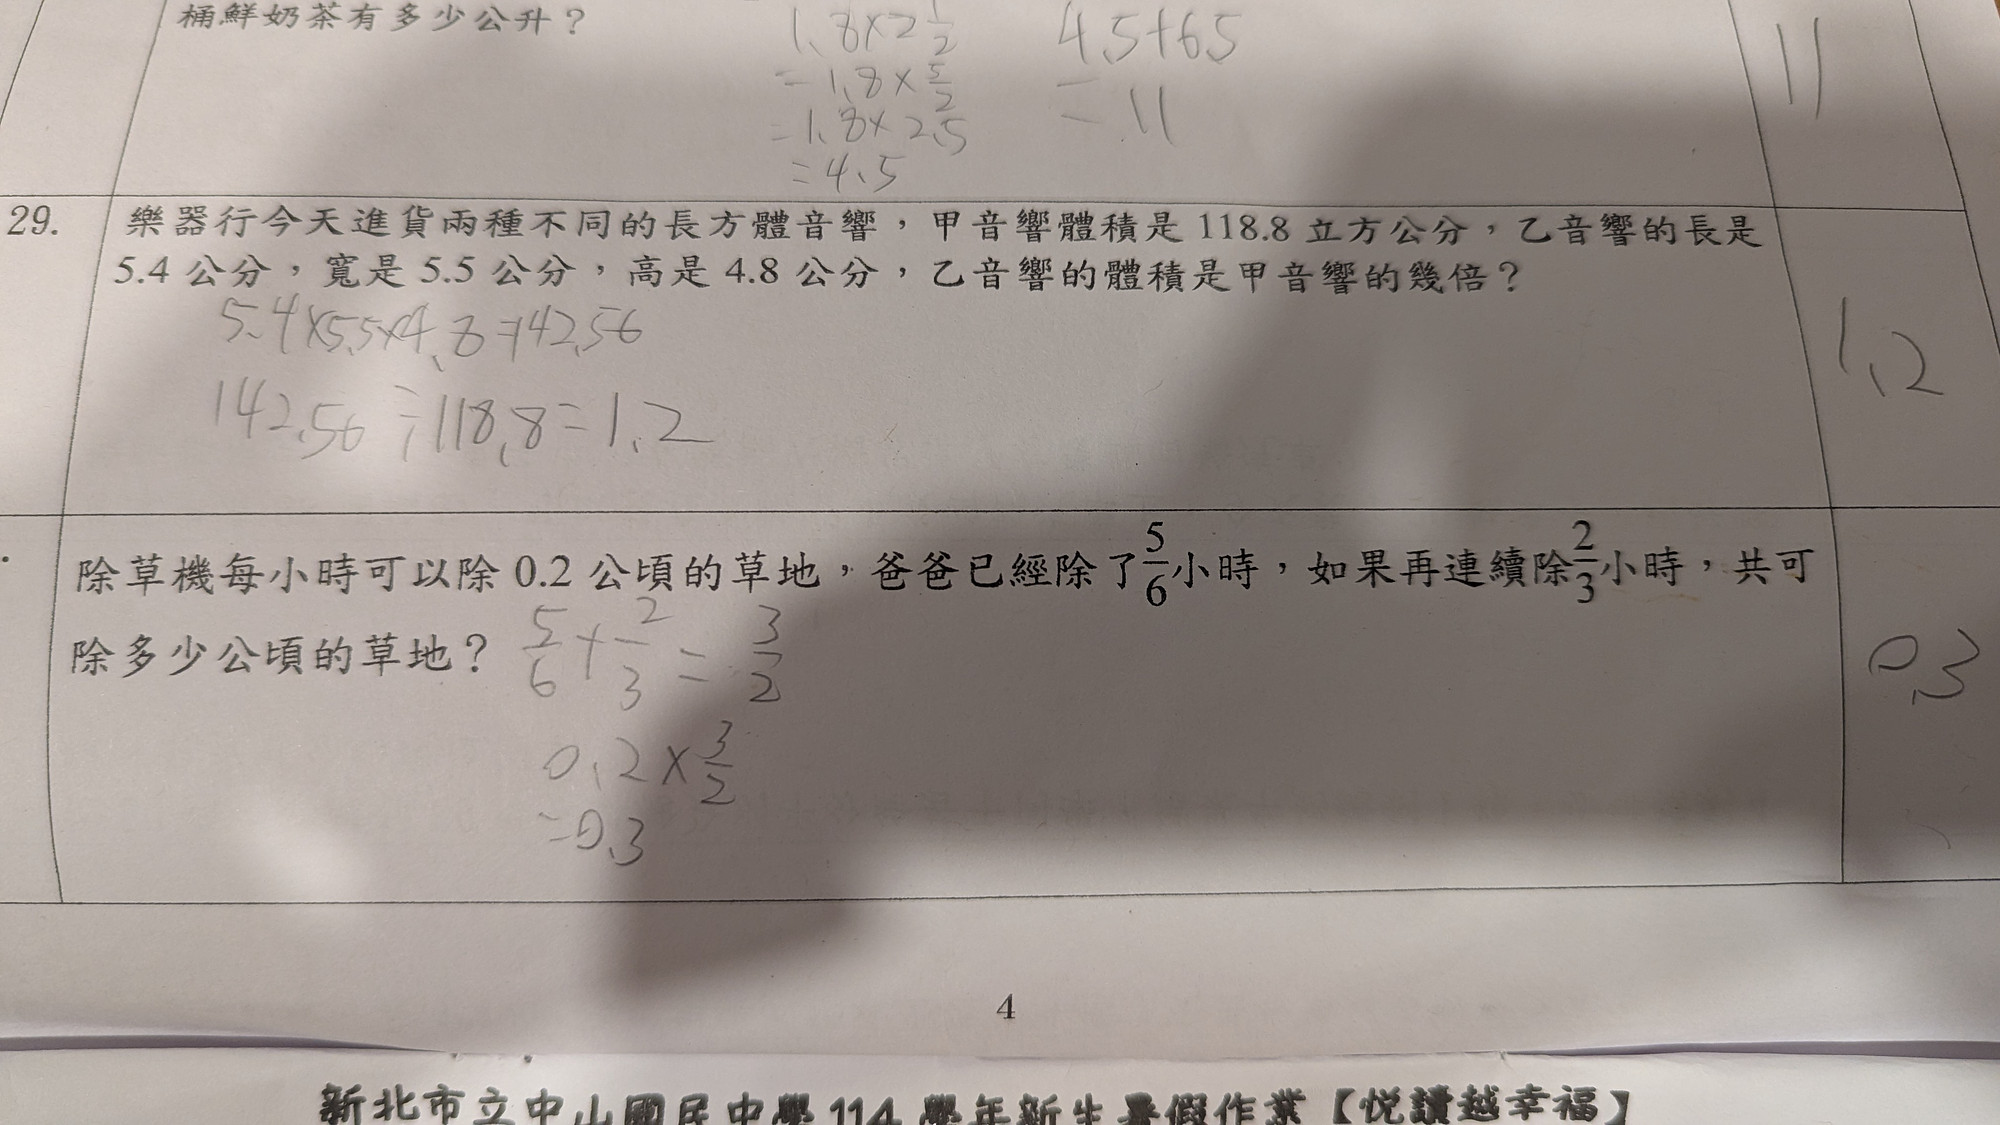 桶鮮奶茶有多少公升？
1.8×2 1/2
=1.8×5/2
=1.8×2.5
=4.5
4.5+6.5
=11
11
29. 樂器行今天進貨兩種不同的長方體音響，甲音響體積是 118.8 立方公分，乙音響的長是
5.4 公分，寬是 5.5 公分，高是 4.8 公分，乙音響的體積是甲音響的幾倍？
5.4×5.5×4.8=142.56
142.56÷118.8=1.2
1.2
除草機每小時可以除 0.2 公頃的草地，爸爸已經除了5/6小時，如果再連續除2/3小時，共可
除多少公頃的草地？
5/6+2/3=3/2
0.2×3/2
=0.3
0.3
4
新北市立中山國民中學 114 學年新生暑假作業【悅讀越幸福】